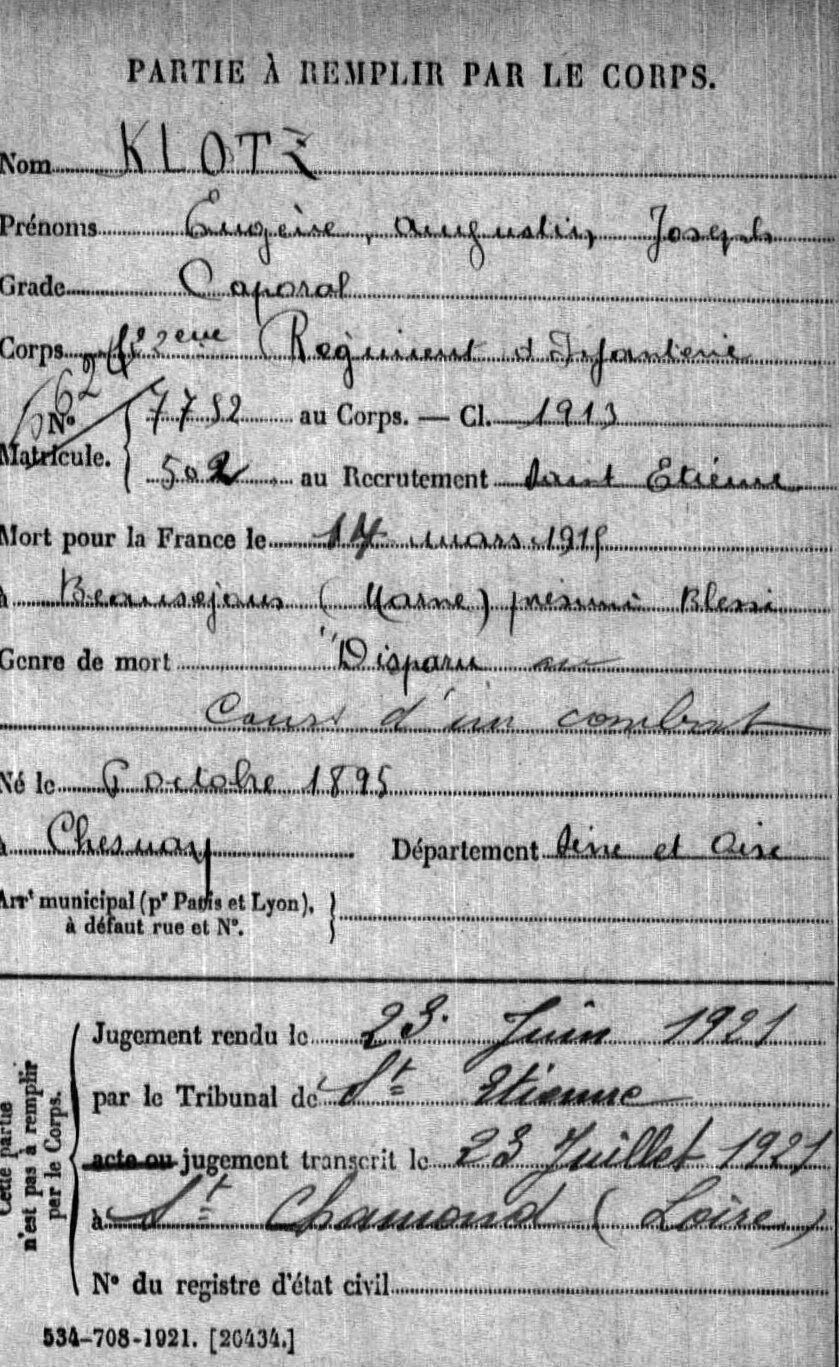 PARTIE À REMPLIR PAR LE CORPS.
Nom KLOTZ
Prénoms Eugène, Augustin, Joseph
Grade Caporal
Corps 22eme Régiment d'Infanterie
N° Matricule. { 7752 au Corps. — Cl. 1913
502 au Recrutement Saint Etienne
Mort pour la France le 14 mars 1915
à Beausejour (Marne) présumé Blessé
Genre de mort "Disparu au
Cours d'un combat
Né le 6 octobre 1895
à Chesnay Département Seine et Oise
Arrt municipal (pr Paris et Lyon),
à défaut rue et N°.
Cette partie n'est pas à remplir par le Corps.
Jugement rendu le 23 Juin 1921
par le Tribunal de St Etienne
acte ou jugement transcrit le 23 Juillet 1921
à St Chamond (Loire)
N° du registre d'état civil
534-708-1921. [26434.]